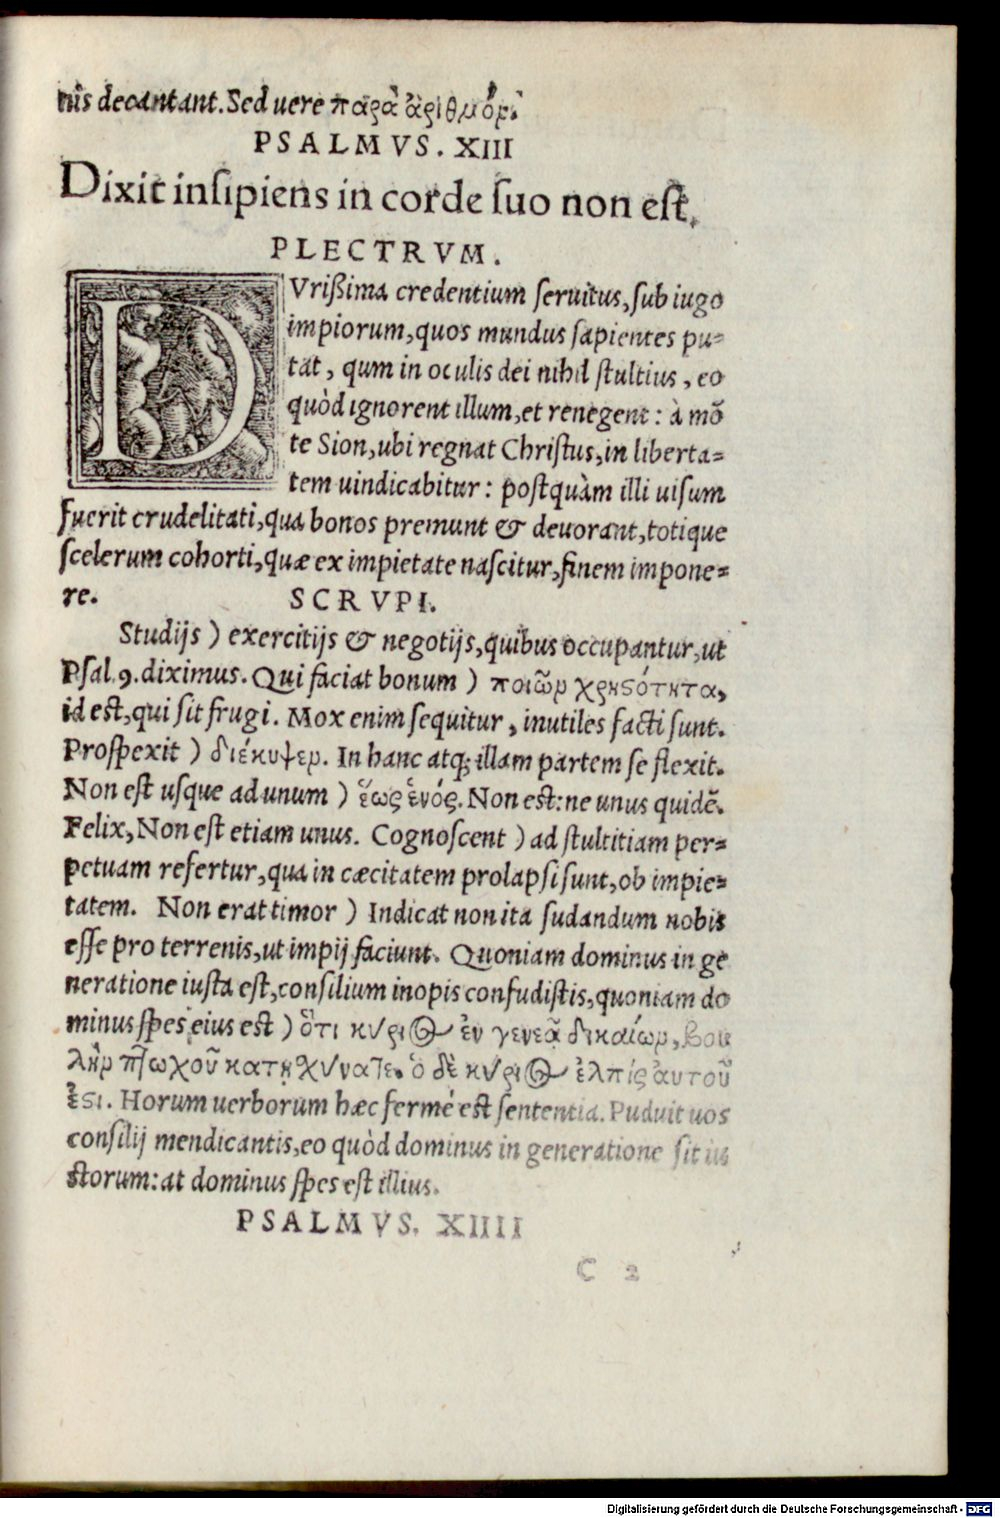 nis decantant. Sed uere παρὰ ἀριθμόν.
PSALMVS. XIII
Dixit inſipiens in corde ſuo non eſt.
PLECTRVM.
DVrißima credentium ſeruitus, ſub iugo
impiorum, quos mundus ſapientes pu-
tat, qum in oculis dei nihil ſtultius, eo
quòd ignorent illum, et renegent: à mō
te Sion, ubi regnat Chriſtus, in liberta-
tem uindicabitur: poſtquàm illi uiſum
fuerit crudelitati, qua bonos premunt & deuorant, totique
ſcelerum cohorti, quæ ex impietate naſcitur, finem impone-
re. SCRVPI.
Studijs ) exercitijs & negotijs, quibus occupantur, ut
Pſal. 9. diximus. Qui faciat bonum ) ποιῶν χρηϛότητα,
id eſt, qui ſit frugi. Mox enim ſequitur, inutiles facti ſunt.
Proſpexit ) διέκυψεν. In hanc atq; illam partem ſe flexit.
Non eſt uſque ad unum ) ἕως ἑνός. Non eſt: ne unus quidē.
Felix, Non eſt etiam unus. Cognoſcent ) ad ſtultitiam per-
petuam refertur, qua in cæcitatem prolapſi ſunt, ob impie-
tatem. Non erat timor ) Indicat non ita ſudandum nobis
eſſe pro terrenis, ut impij faciunt. Quoniam dominus in ge
neratione iuſta eſt, conſilium inopis confudiſtis, quoniam do
minus ſpes eius eſt ) ὅτι κύριος ἐν γενεᾷ δικαίων, βου
λὴν πτωχοῦ κατῃχύνατε. ὁ δὲ κύριος ἐλπίς ἀυτοῦ
ἐϛι. Horum uerborum hæc fermé eſt ſententia. Puduit uos
conſilij mendicantis, eo quòd dominus in generatione ſit iu
ſtorum: at dominus ſpes eſt illius.
PSALMVS. XIIII
C 2
Digitalisierung gefördert durch die Deutsche Forschungsgemeinschaft - DFG